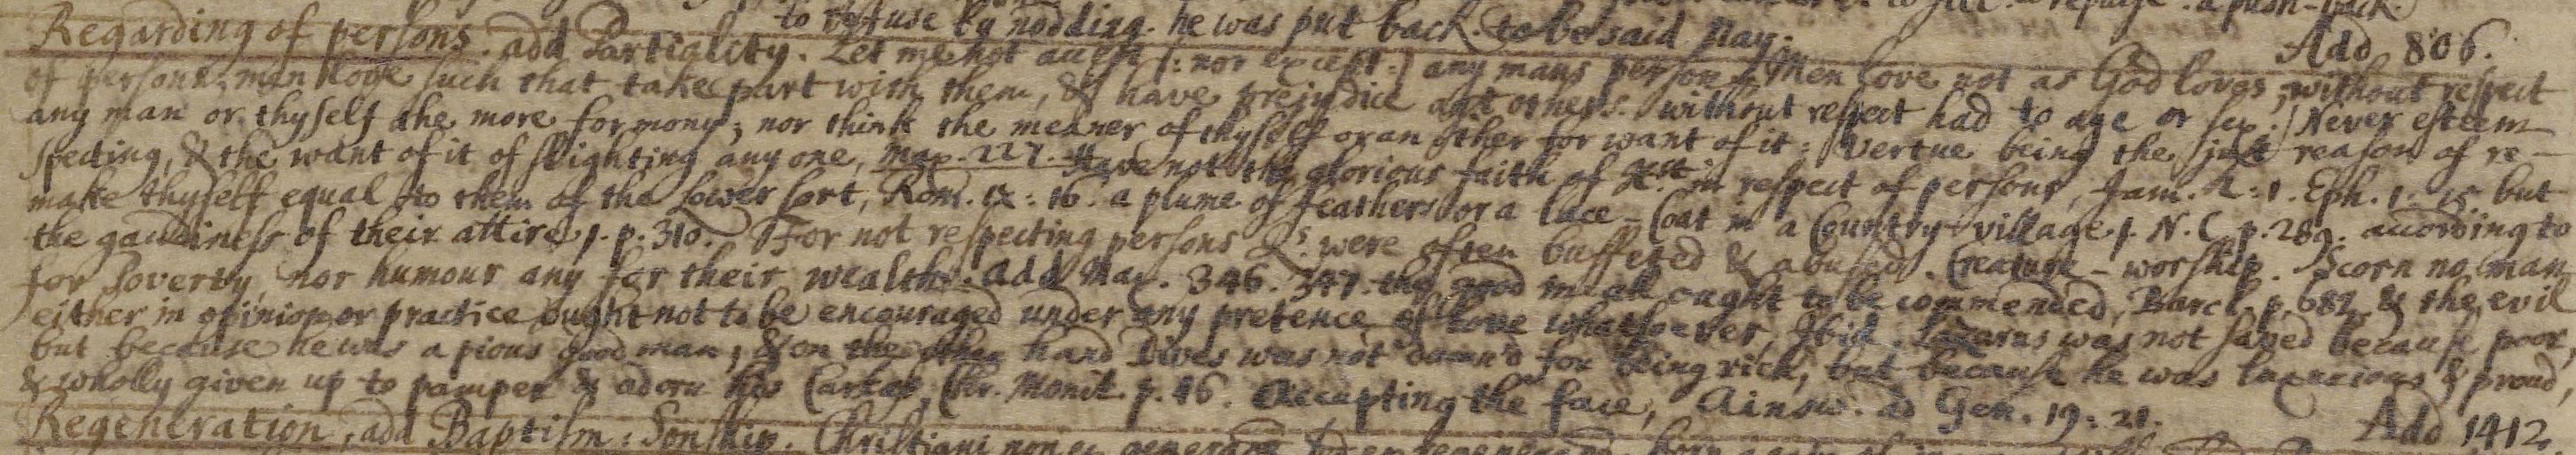 to refuse by nodding. he was put back. to be said nay.
Add 806.
Regarding of persons. add Partiality. Let me not accept [: nor except :] any mans person. Men love not as God loves, without respect
of persons; men love such that take part with them, & have prejudice agst others. without respect had to age or sex. Never esteem
any man or thyself the more for mony; nor think the meaner of thyself or an other for want of it: Vertue being the just reason of re-
specting, & the want of it of slighting any one, Max. 227. Have not the glorious faith of Xst in respect of persons, Jam. 2:1. Eph. 1:15. but
make thyself equal to them of the lower sort, Rom. 12:16. a plume of feathers or a lace-Coat in a Country-village. N. C. p. 289. according to
the gaudiness of their attire, p. 310. For not respecting persons Qs. were often buffeted & abused. Creature-worship. Scorn no man
for Poverty, nor humour any for their wealth. add Max. 346. 347. the good in all ought to be commended, Barcl. p. 682. & the evil
either in opinion or practice ought not to be encouraged under any pretence of love whatsoever, Ibid. Lazarus was not saved because poor,
but because he was a pious good man; & on the other hand Dives was not damn'd for being rich, but because he was luxurious & proud,
& wholly given up to pamper & adorn his Carkas, Chr. Monit. p. 46. Accepting the face, Ainsw. ad Gen. 19:21.
Add 1412.
Regeneration, add Baptism: Sonship. Christiani non